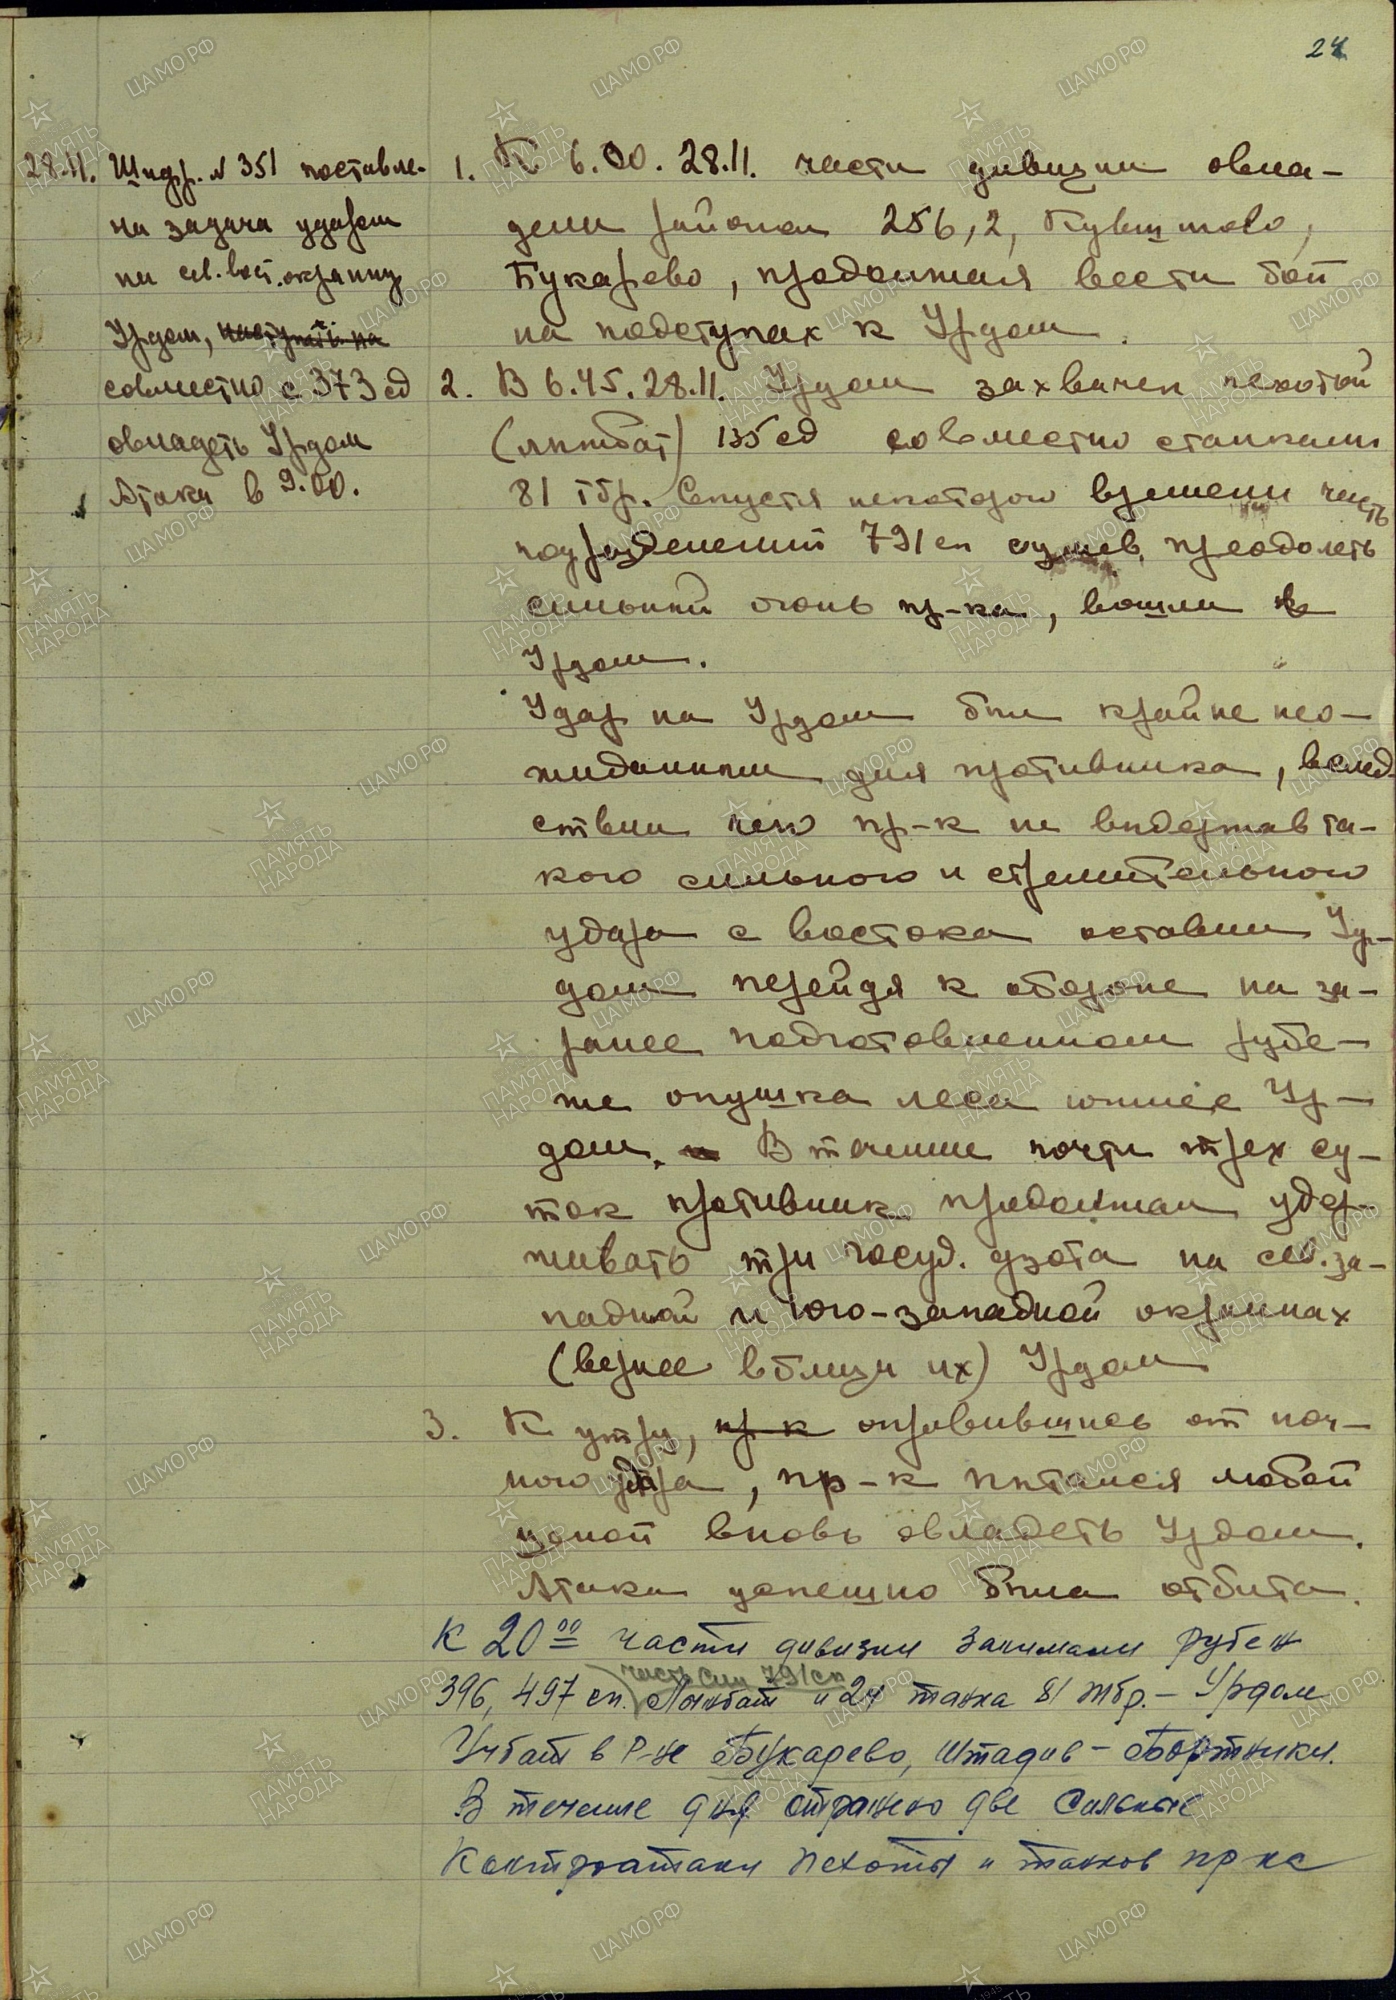 24
28.11.
Шифр. № 351 поставле-
на задача ударом
на сев. вост. окраину
Урдом, наступать на
совместно с 373 сд
овладеть Урдом
Атака в 9.00.
1. К 6.00. 28.11. части дивизии овла-
дели районом 256,2, Кувшиново,
Букарево, продолжая вести бой
на подступах к Урдом.
2. В 6.45. 28.11. Урдом захвачен пехотой
(лыжбат) 135 сд совместно с танками
81 тбр. Спустя некоторое времени часть
подразделений 791 сп сумев преодолеть
сильный огонь пр-ка, вошли в
Урдом.
Удар на Урдом был крайне нео-
жиданным для противника, вслед-
ствии чего пр-к не выдержав та-
кого сильного и стремительного
удара с востока оставил Ур-
дом перейдя к обороне на за-
ранее подготовленном рубе-
же опушка леса южнее Ур-
дом. В течение почти трех су-
ток противник продолжал удер-
живать три дзота на сев. за-
падной и юго-западной окраинах
(вернее вблизи их) Урдом
3. К утру, пр-к оправившись от ноч-
ного удара, пр-к пытался любой
ценой вновь овладеть Урдом.
Атака успешно была отбита.
К 20 00 части дивизии занимали рубеж
часть сил 791 сп
396, 497 сп. Лыжбат и 24 танка 81 тбр. – Урдом
Учбат в р-не Букарево, Штадив – Бортники.
В течение дня отражено две сильные
Контратаки пехоты и танков пр ка
ЦАМО РФ
ПАМЯТЬ НАРОДА